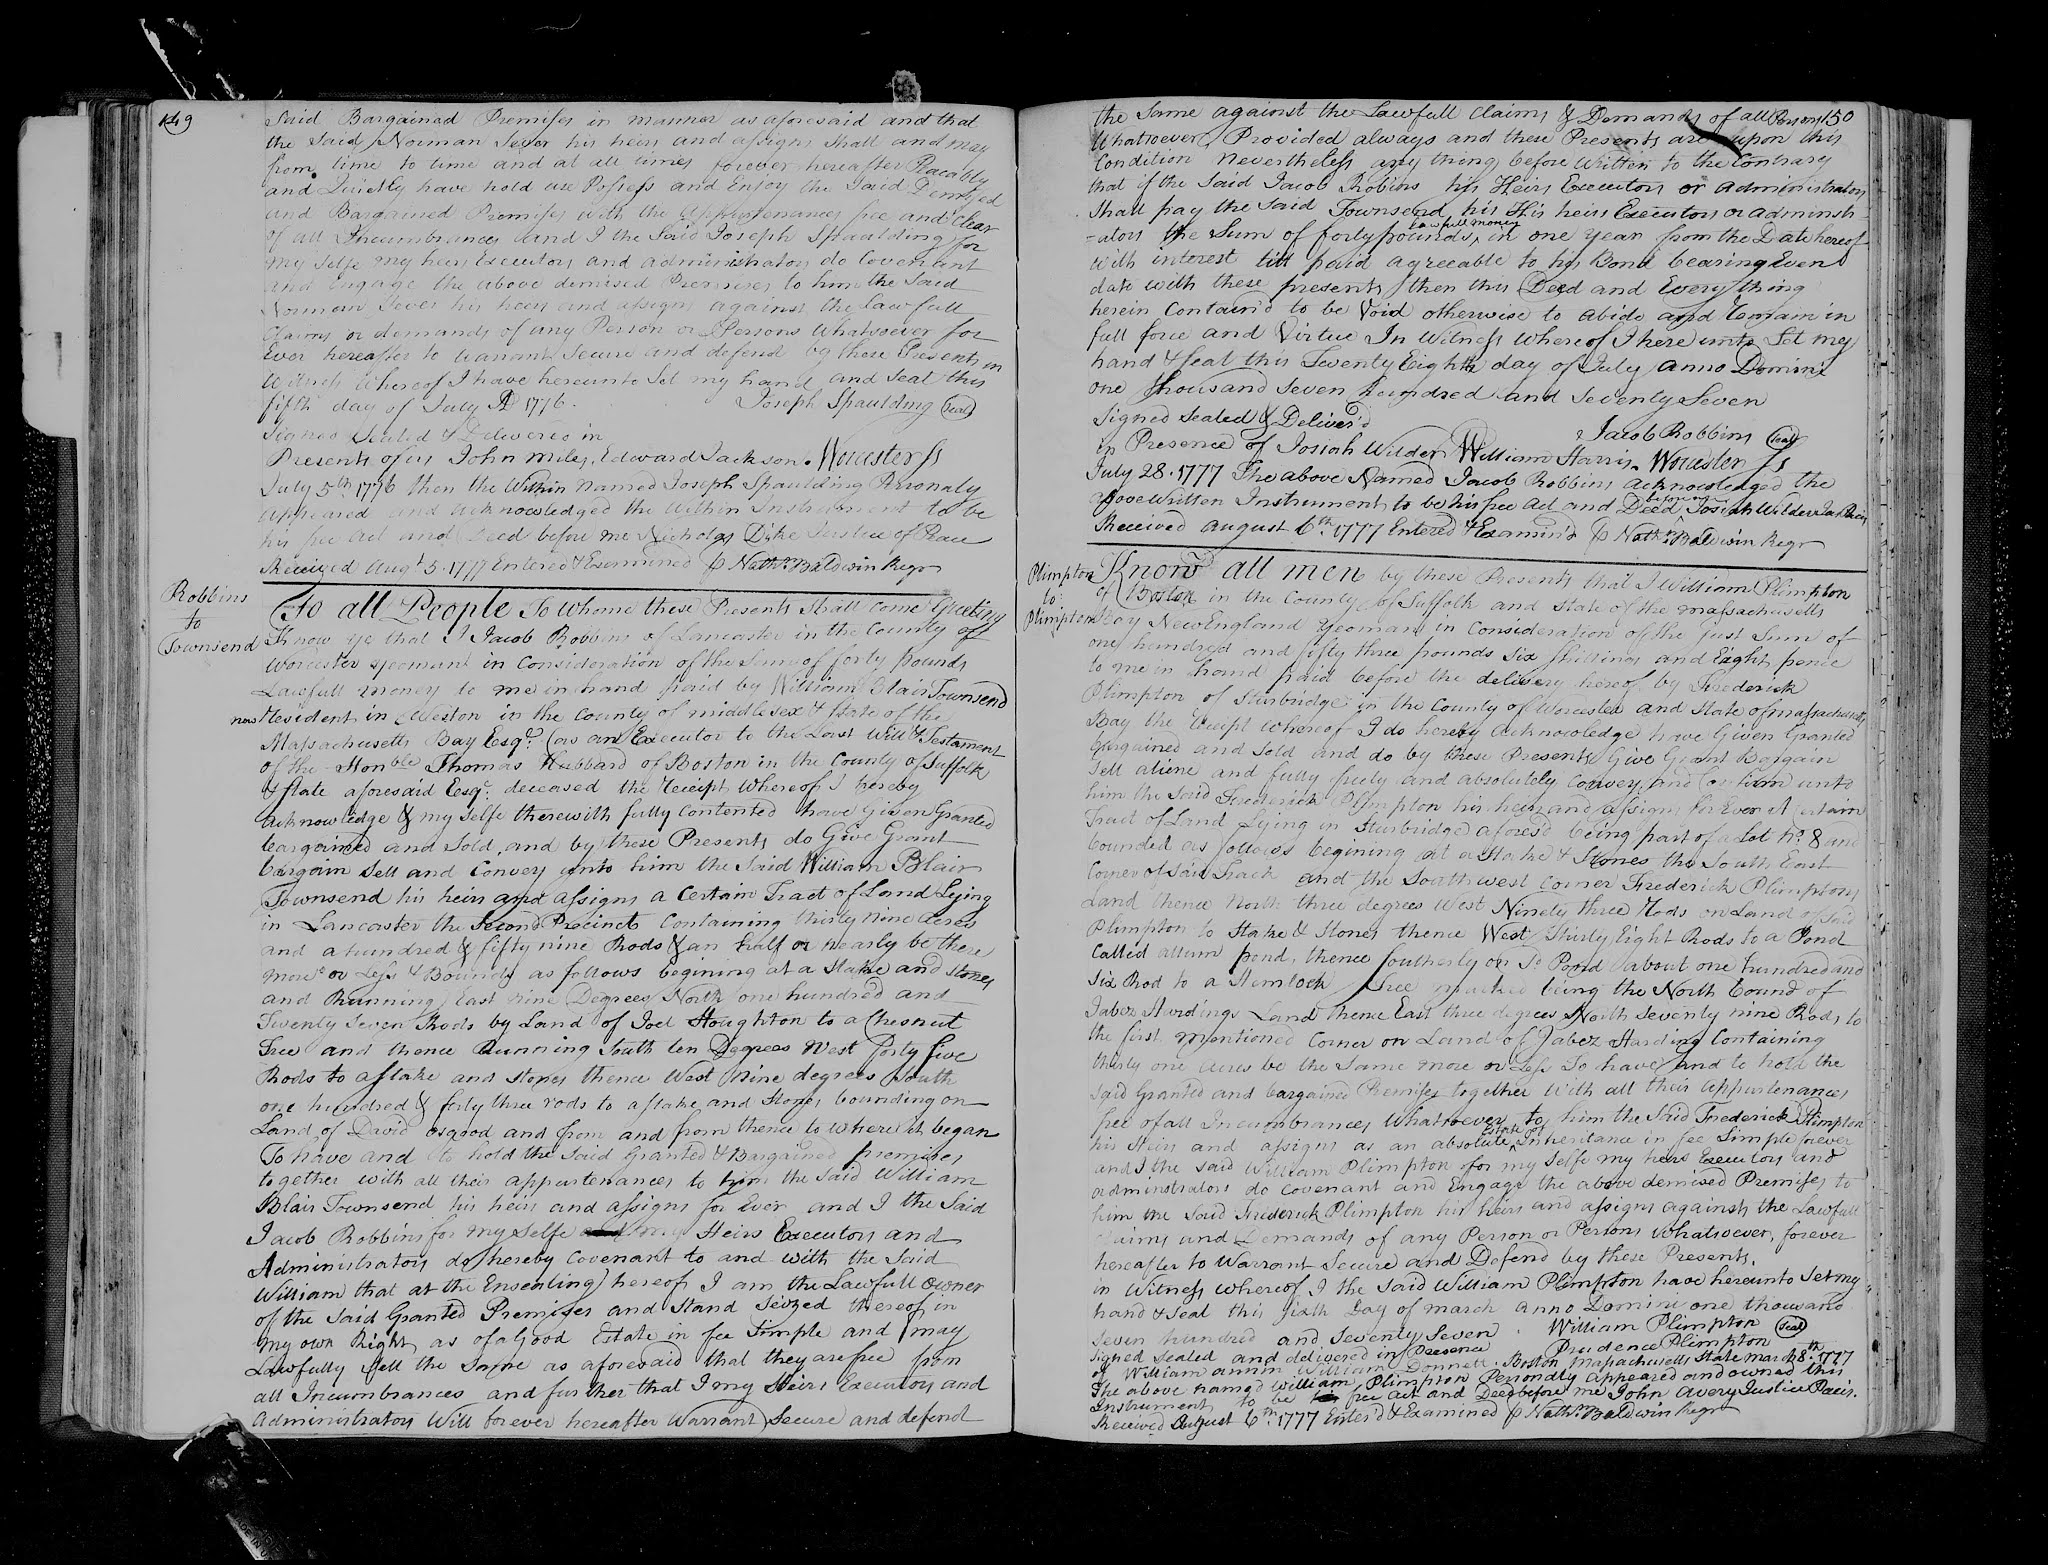 149
Said Bargained Premises in manner as aforesaid and that
the Said Norman Sever his heirs and assigns Shall and may
from time to time and at all times forever hereafter Peacably
and Quietly have hold use Possess and Enjoy the Said Demised
and Bargained Premises with the Appurtenances free and Clear
of all Incumbrances and I the Said Joseph Spaulding for
my Selfe my heirs Executors and administrators do Covenant
and Engage the above demised Premises to him the Said
Norman Sever his heirs and assigns against the lawfull
Claims or demands of any Person or Persons Whatsoever for
Ever hereafter to Warrant Secure and defend by these Presents in
Witness Whereof I have hereunto Set my hand and Seal this
fifth day of July AD 1776. Joseph Spaulding (Seal)
Signed Sealed & Delivered in
Presents of us John Miles, Edward Jackson. Worcester ss
July 5th 1776 then the Within Named Joseph Spaulding Personaly
appeared and acknowledged the Within Instrument to be
his free act and Deed before me Nicholas Dike Justice of Peace
Received Augt 5. 1777 Entered & Examined p Nathn. Baldwin Regr
Robbins
to
Townsend
To all People To Whome these Presents Shall come Greeting
Know ye that I Jacob Robbins of Lancaster in the County of
Worcester yeoman in Consideration of the Sum of forty pounds
Lawfull money to me in hand paid by William Blair Townsend
now Resident in Weston in the County of middlesex & State of the
Massachusetts Bay Esqr. (as an Executor to the Last Will & Testament
of the Honble Thomas Hubbard of Boston in the County of Suffolk
& State aforesaid Esqr. deceased the Receipt Whereof I hereby
acknowledge & my Selfe therewith fully Contented have Given Granted
bargained and Sold, and by these Presents do Give Grant
bargain Sell and Convey unto him the Said William Blair
Townsend his heirs and assigns a Certain Tract of Land Lying
in Lancaster the Second Precinct Containing thirty nine acres
and a hundred & fifty nine Rods & an half or nearly be there
more or Less & Bounds as follows begining at a Stake and Stones
and Running East nine Degrees North one hundred and
Twenty Seven Rods by Land of Joel Houghton to a Chesnut
Tree and thence Running South ten Degrees West forty five
Rods to a Stake and Stones thence West Nine degrees South
one hundred & forty three rods to a Stake and Stones bounding on
Land of David osgood and from and from thence to where it began
To have and to hold the Said Granted & Bargained premises
together with all their appurtenances to him the Said William
Blair Townsend his heirs and assigns for Ever and I the Said
Jacob Robbins for my Selfe my Heirs Executors and
Administrators do hereby Covenant to and with the Said
William that at the Ensealing hereof I am the Lawfull Owner
of the Said Granted Premises and Stand Seized thereof in
my own Right as of a Good Estate in fee Simple and may
Lawfully Sell the Same as aforesaid that they are free from
all Incumbrances and further that I my Heirs Executors and
Administrators Will forever hereafter Warrant Secure and defend
150
the Same against the Lawfull Claims & Demands of all Persons
Whatsoever Provided always and these Presents are upon this
Condition nevertheless any thing before Written to the Contrary
that if the Said Jacob Robins his Heirs Executors or administrators
Shall pay the Said Townsend his His heirs Executors or adminsh
-ators the Sum of forty pounds lawfull money in one year from the Date hereof
With interest till paid agreeable to his Bond bearing Even
date with these presents then this Deed and Every thing
herein Contain'd to be Void otherwise to abide and Remain in
full force and Virtue In Witness Whereof I here unto Set my
hand & Seal this Twenty Eighth day of July anno Domini
one thousand Seven hundred and Seventy Seven
Signed Sealed & Deliver'd Jacob Robbins (Seal)
in Presence of Josiah Wilder William Harris. Worcester ss
July 28. 1777 The above Named Jacob Robbins acknowledged the
above Written Instrument to be his free act and Deed before me Josiah Wilder Jus Pacis
Received august 6th. 1777 Entered & Examin'd p Nathn. Baldwin Regr
Plimpton
to
Plimpton
Know all men by these Presents that I William Plimpton
of Boston in the County of Suffolk and State of the massachusetts
Bay NewEngland Yeoman in Consideration of the just Sum of
one hundred and fifty three pounds Six Shillings and Eight pence
to me in hand paid before the delivery hereof by Frederick
Plimpton of Sturbridge in the County of Worcester and State of massachusetts
Bay the Receipt Whereof I do hereby acknowledge have Given Granted
bargained and Sold and do by these Presents Give Grant Bargain
Sell aliene and fully freely and absolutely Convey and Confirm unto
him the Said Frederick Plimpton his heirs and assigns for Ever A Certain
Tract of Land Lying in Sturbridge aforesd being part of a Lot No. 8 and
bounded as follows begining at a Stake & Stones the South East
Corner of Said Track and the Southwest Corner Frederick Plimptons
Land thence North three degrees West Ninety three Rods on Land of Said
Plimpton to Stake & Stones thence West thirty Eight Rods to a Pond
Called allum pond, thence Southerly on Sd Pond about one hundred and
Six Rod to a Hemlock Tree marked being the North bound of
Jabez Hardings Land thence East three degrees North Seventy nine Rods to
the first mentioned Corner on Land of Jabez Harding Containing
thirty one acres be the Same more or Less To have and to hold the
Said Granted and bargained Premises together With all their appurtenances
free of all Incumbrances Whatsoever to him the Said Frederick Plimpton
his Heirs and assigns as an absolute Estate of Inheritance in fee Simple forever
and I the Said William Plimpton for my Selfe my heirs Executors and
adminstrators do Covenant and Engage the above demised Premises to
him the Said Frederick Plimpton his heirs and assigns against the Lawfull
Claims and Demands of any Person or Persons Whatsoever, forever
hereafter to Warrant Secure and Defend by these Presents.
in Witness whereof I the Said William Plimpton have hereunto Set my
hand & Seal this Sixth Day of march anno Domini one thousand
Seven hundred and Seventy Seven. William Plimpton (Seal)
Signed Sealed and delivered in Presence Prudence Plimpton
of William Donnett. Boston Massachusetts State March 8th 1777
The above named William Plimpton Personally appeared and owned this
Instrument to be free act and Deed before me John Avery Justice Pacis.
Received August 6th. 1777 Enter'd & Examined p Nathn. Baldwin Regr